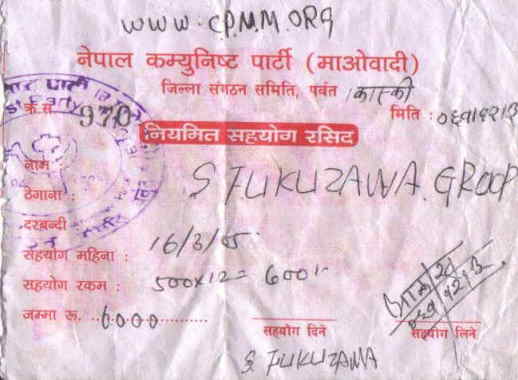 WWW.CPMM.ORG
नेपाल कम्युनिष्ट पार्टी (माओवादी)
जिल्ला संगठन समिति, पर्वत कास्की
क्र.सं. 970
मिति : ०६१।१२।३
नियमित सहयोग रसिद
नाम :
ठेगाना : S FUKUZAWA. GROOP
दरबन्दी :
सहयोग महिना : 16/3/05
सहयोग रकम : 500x12= 600
जम्मा रू. 6000
सहयोग दिने
सहयोग लिने
S. FUKUZAWA